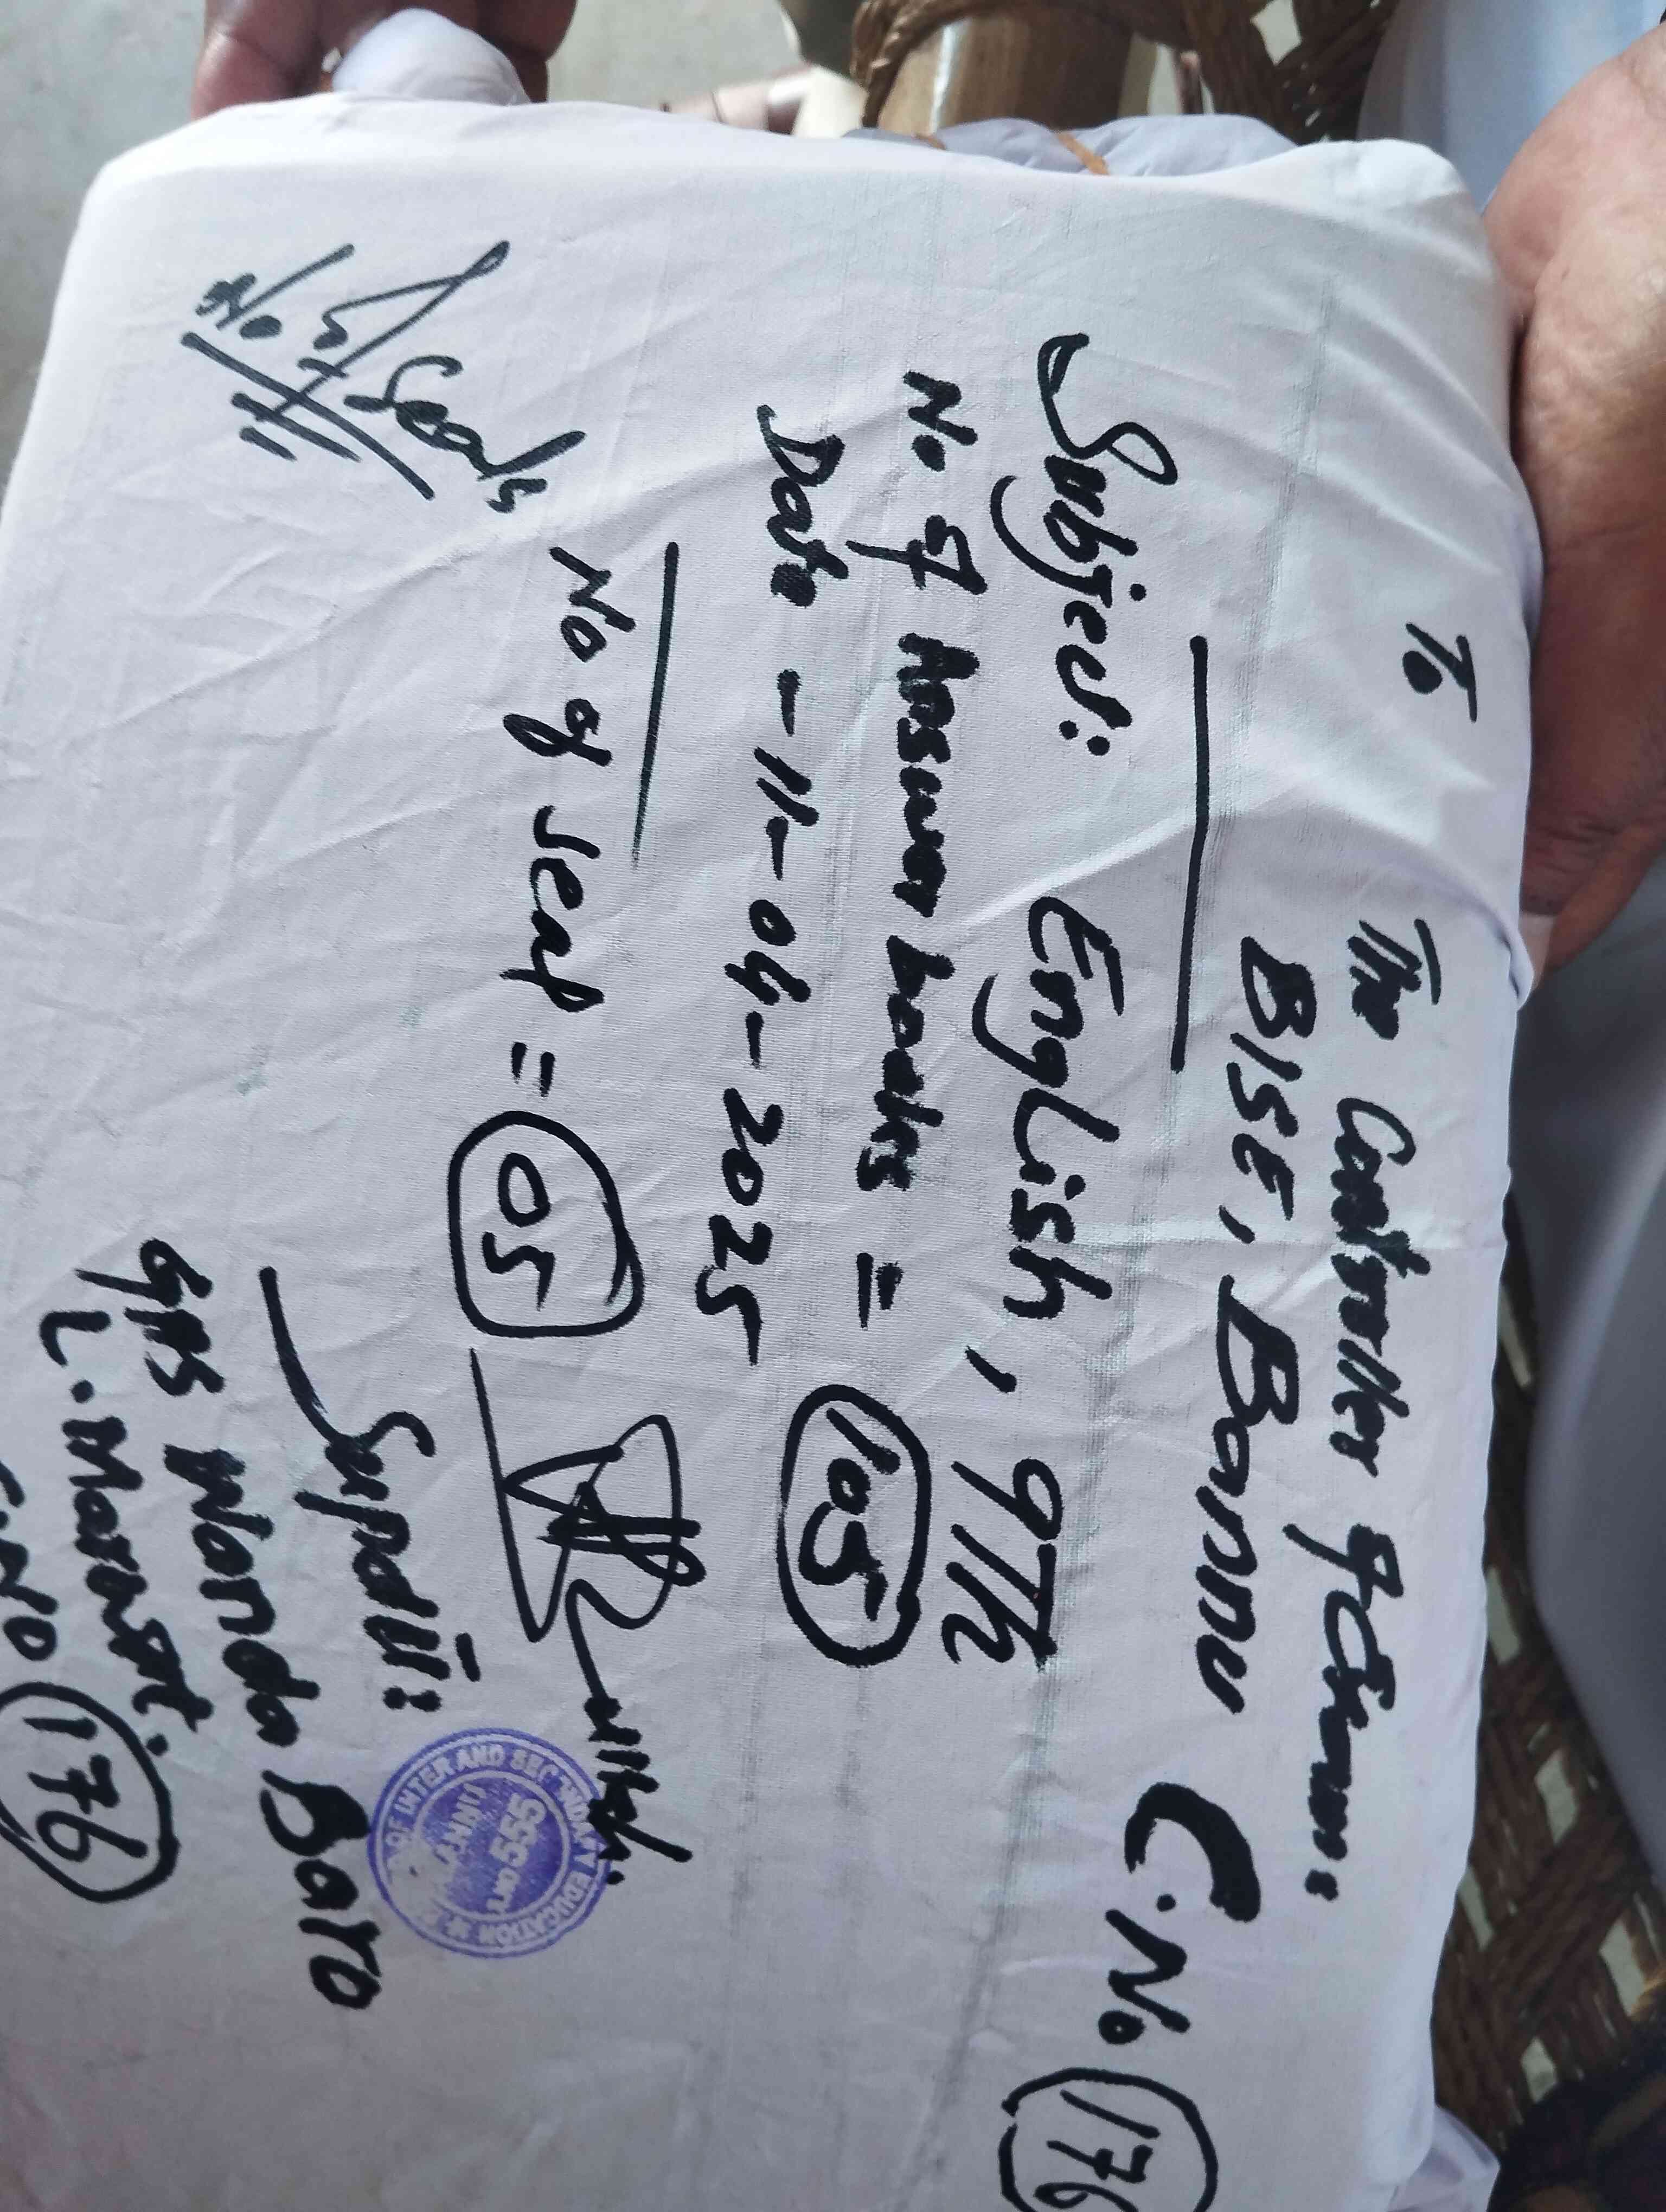 To
The Controller of Exam:
BISE, Bannu
C.No 176
Subject: English, 9Th
No of Answer books = 105
Date - 11-04-2025
No of Seal = 05
Supdtt:
GHS Wanda Baro
L. Marwat.
C.No 176
OF INTER AND SECONDARY EDUCATION
BANNU
555